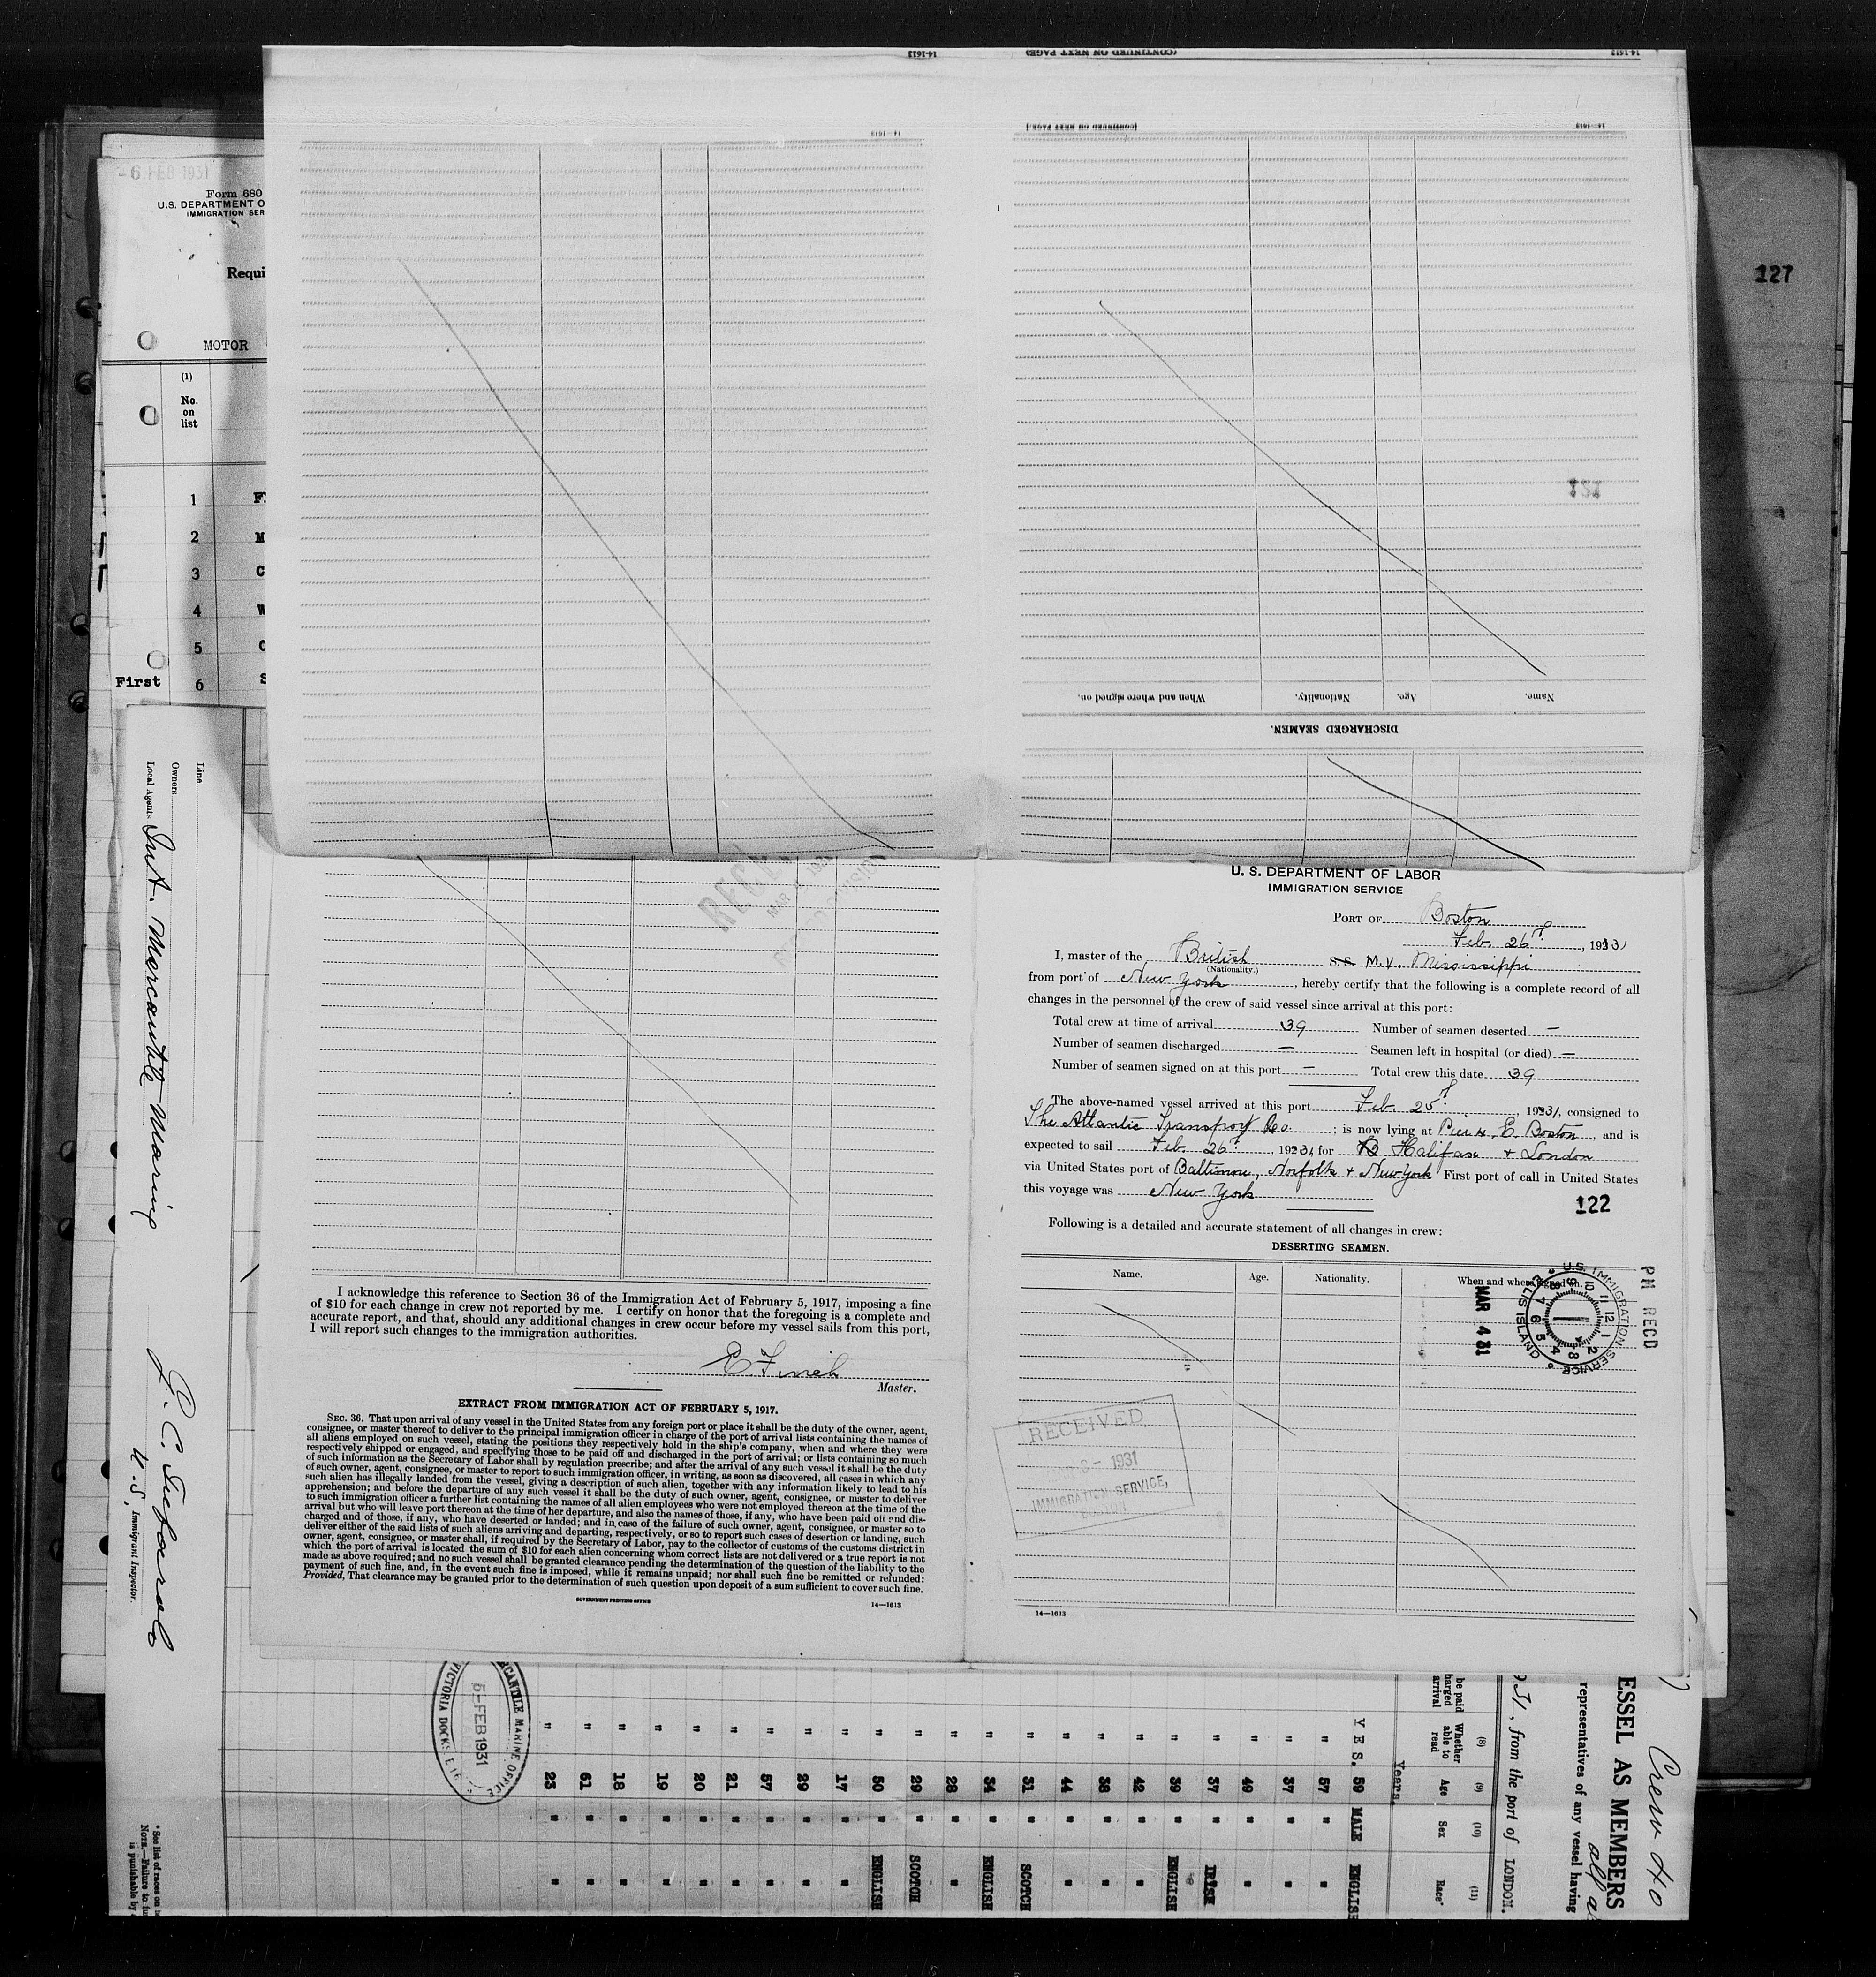 14-1613
(CONTINUED ON NEXT PAGE)
14-1613
14-1613
[CONTINUED ON NEXT PAGE.]
14-1613
127
-6 FEB 1931
Form 680
U.S. DEPARTMENT O
IMMIGRATION SER
Requi
MOTOR
(1)
No.
on
list
1
2
3
4
5
First 6
121
Name.
Age.
Nationality.
When and where signed on.
DISCHARGED SEAMEN.
Line
Owners
Local Agents Int. Mercantile Marine
U.S. Immigrant Inspector.
U. S. DEPARTMENT OF LABOR
IMMIGRATION SERVICE
PORT OF Boston
Feb. 26th, 1931
I, master of the British S.S. M.V. Mississippi
(Nationality.)
from port of New York, hereby certify that the following is a complete record of all
changes in the personnel of the crew of said vessel since arrival at this port:
Total crew at time of arrival 39 Number of seamen deserted —
Number of seamen discharged — Seamen left in hospital (or died) —
Number of seamen signed on at this port — Total crew this date 39
The above-named vessel arrived at this port Feb. 25th, 1931, consigned to
The Atlantic Transport Co. ; is now lying at Pier 4, E. Boston, and is
expected to sail Feb. 26th, 1931, for Halifax + London
via United States port of Baltimore, Norfolk + New York First port of call in United States
this voyage was New York
122
Following is a detailed and accurate statement of all changes in crew:
DESERTING SEAMEN.
Name. Age. Nationality. When and where signed on.
PM RECD
MAR 4 31
U.S. IMMIGRATION SERVICE
ELLIS ISLAND
RECEIVED
1931
IMMIGRATION SERVICE,
14—1613
I acknowledge this reference to Section 36 of the Immigration Act of February 5, 1917, imposing a fine
of $10 for each change in crew not reported by me. I certify on honor that the foregoing is a complete and
accurate report, and that, should any additional changes in crew occur before my vessel sails from this port,
I will report such changes to the immigration authorities.
E. Finch
Master.
EXTRACT FROM IMMIGRATION ACT OF FEBRUARY 5, 1917.
SEC. 36. That upon arrival of any vessel in the United States from any foreign port or place it shall be the duty of the owner, agent,
consignee, or master thereof to deliver to the principal immigration officer in charge of the port of arrival lists containing the names of
all aliens employed on such vessel, stating the positions they respectively hold in the ship's company, when and where they were
respectively shipped or engaged, and specifying those to be paid off and discharged in the port of arrival; or lists containing so much
of such information as the Secretary of Labor shall by regulation prescribe; and after the arrival of any such vessel it shall be the duty
of such owner, agent, consignee, or master to report to such immigration officer, in writing, as soon as discovered, all cases in which any
such alien has illegally landed from the vessel, giving a description of such alien, together with any information likely to lead to his
apprehension; and before the departure of any such vessel it shall be the duty of such owner, agent, consignee, or master to deliver
to such immigration officer a further list containing the names of all alien employees who were not employed thereon at the time of the
arrival but who will leave port thereon at the time of her departure, and also the names of those, if any, who have been paid off and dis-
charged and of those, if any, who have deserted or landed; and in case of the failure of such owner, agent, consignee, or master so to
deliver either of the said lists of such aliens arriving and departing, respectively, or so to report such cases of desertion or landing, such
owner, agent, consignee, or master shall, if required by the Secretary of Labor, pay to the collector of customs of the customs district in
which the port of arrival is located the sum of $10 for each alien concerning whom correct lists are not delivered or a true report is not
made as above required; and no such vessel shall be granted clearance pending the determination of the question of the liability to the
payment of such fine, and, in the event such fine is imposed, while it remains unpaid; nor shall such fine be remitted or refunded:
Provided, That clearance may be granted prior to the determination of such question upon deposit of a sum sufficient to cover such fine.
GOVERNMENT PRINTING OFFICE
14—1613
Crew 40
ESSEL AS MEMBERS
representatives of any vessel having
31, from the port of LONDON.
be paid
harged
arrival
(8)
Whether
able to
read
(9)
Age
(10)
Sex
(11)
Race*
Years.
YES. 59 MALE ENGLISH
" 57 " "
" 37 " "
" 49 " "
" 37 " IRISH
" 39 " ENGLISH
" 42 " "
" 38 " "
" 44 " "
" 31 " SCOTCH
" 34 " ENGLISH
" 28 " "
" 29 " SCOTCH
" 50 " ENGLISH
" 17 " "
" 29 " "
" 57 " "
" 21 " "
" 20 " "
" 19 " "
" 18 " "
" 61 " "
" 23 " "
RCANTILE MARINE OFFICE
5-FEB 1931
VICTORIA DOCKS E 16
* See list of races on
NOTE.—Failure to fu
is punishable by